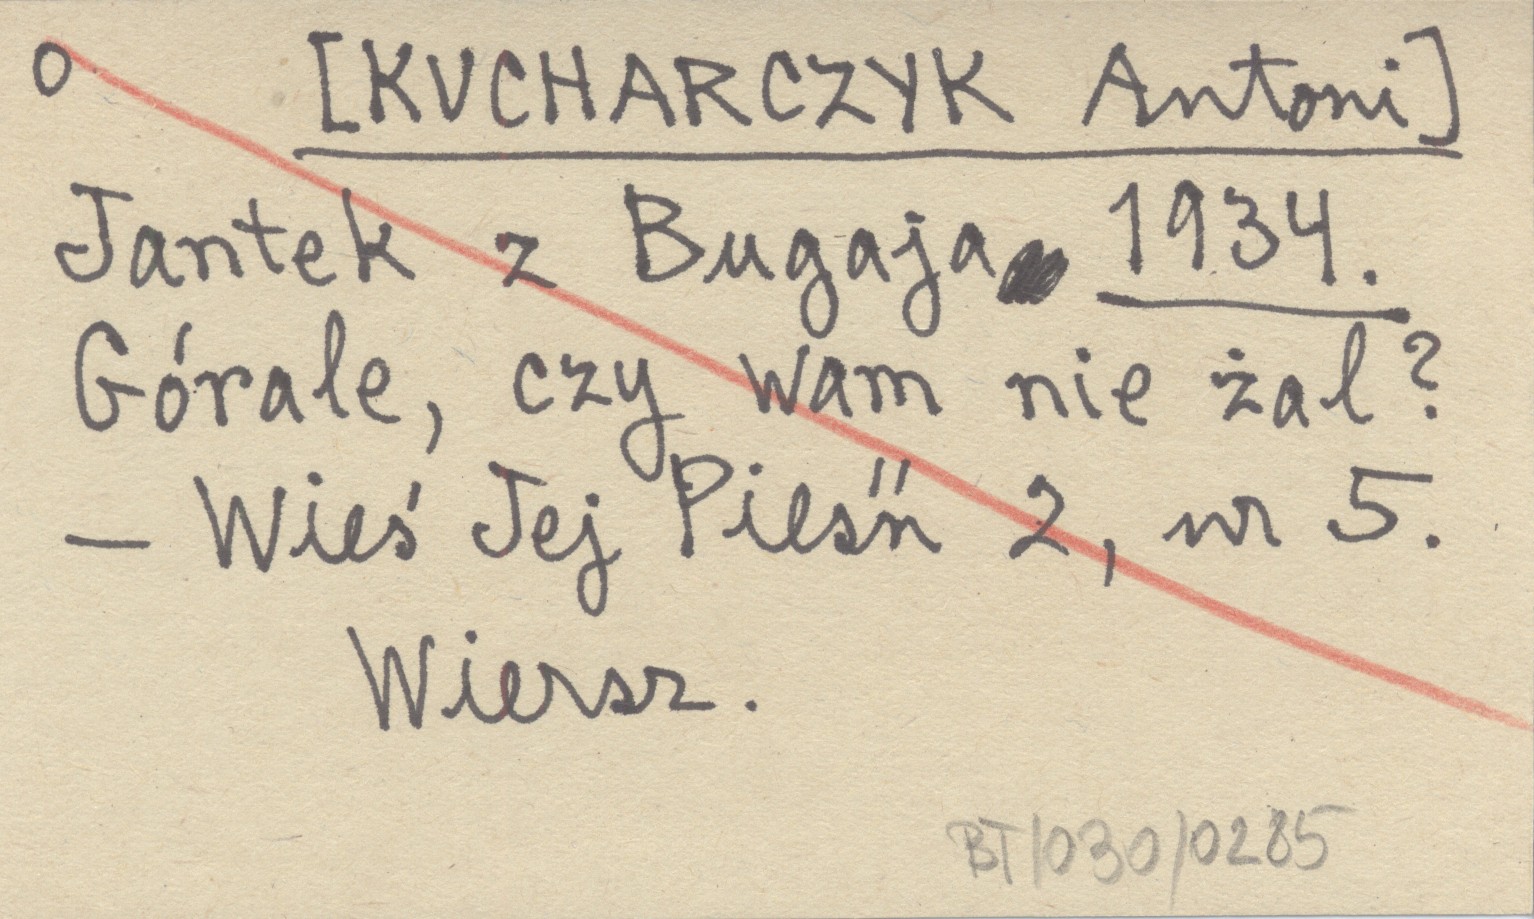 o [KUCHARCZYK Antoni]
Jantek z Bugaja 1934.
Górale, czy wam nie żal?
— Wieś Jej Pieśń 2, nr 5.
Wiersz.
BT/030/0285